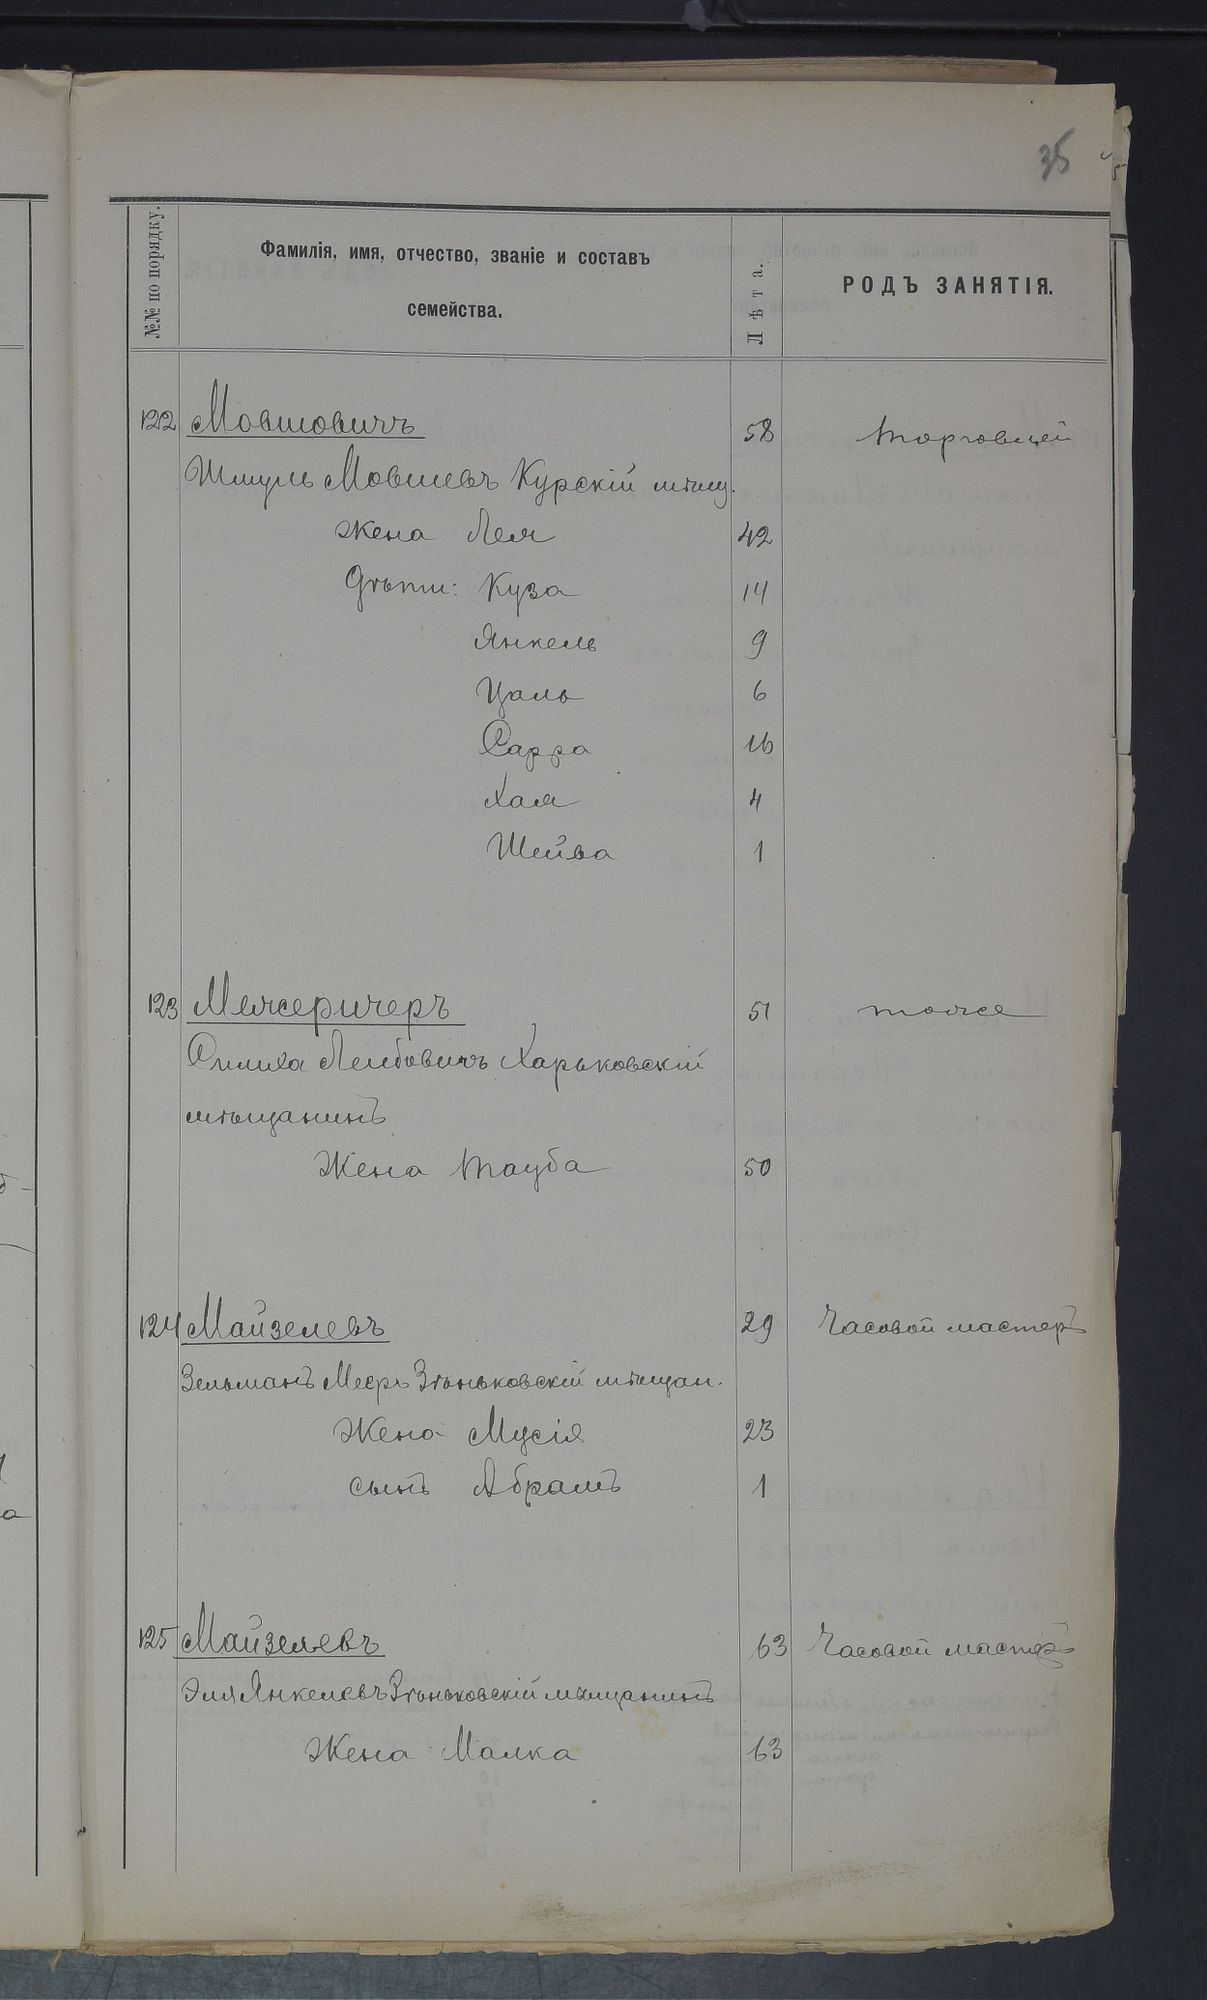 35
№№ по порядку.
Фамилія, имя, отчество, званіе и составъ
семейства.
Лѣта.
РОДЪ ЗАНЯТІЯ.
122 Мовшовичъ 58 Торговцей
Шмуль Мовшевъ Курскій мѣщ.
Жена Лея 42
Дѣти: Куза 14
Янкель 9
Цаль 6
Сарра 16
Хая 4
Шейва 1
123 Межеричеръ 51 тоже
Лейбовичъ Харьковскій
мѣщанинъ
Жена Тауба 50
124 Майзелевъ 29 Часовой мастеръ
Зельманъ Меер. Зѣньковскій мѣщан.
Жена Мусія 23
сынъ Абрамъ 1
125 Майзелевъ 63 Часовой мастеръ
Эля Янкелевъ Зѣньковскій мѣщанинъ
Жена Малка 63